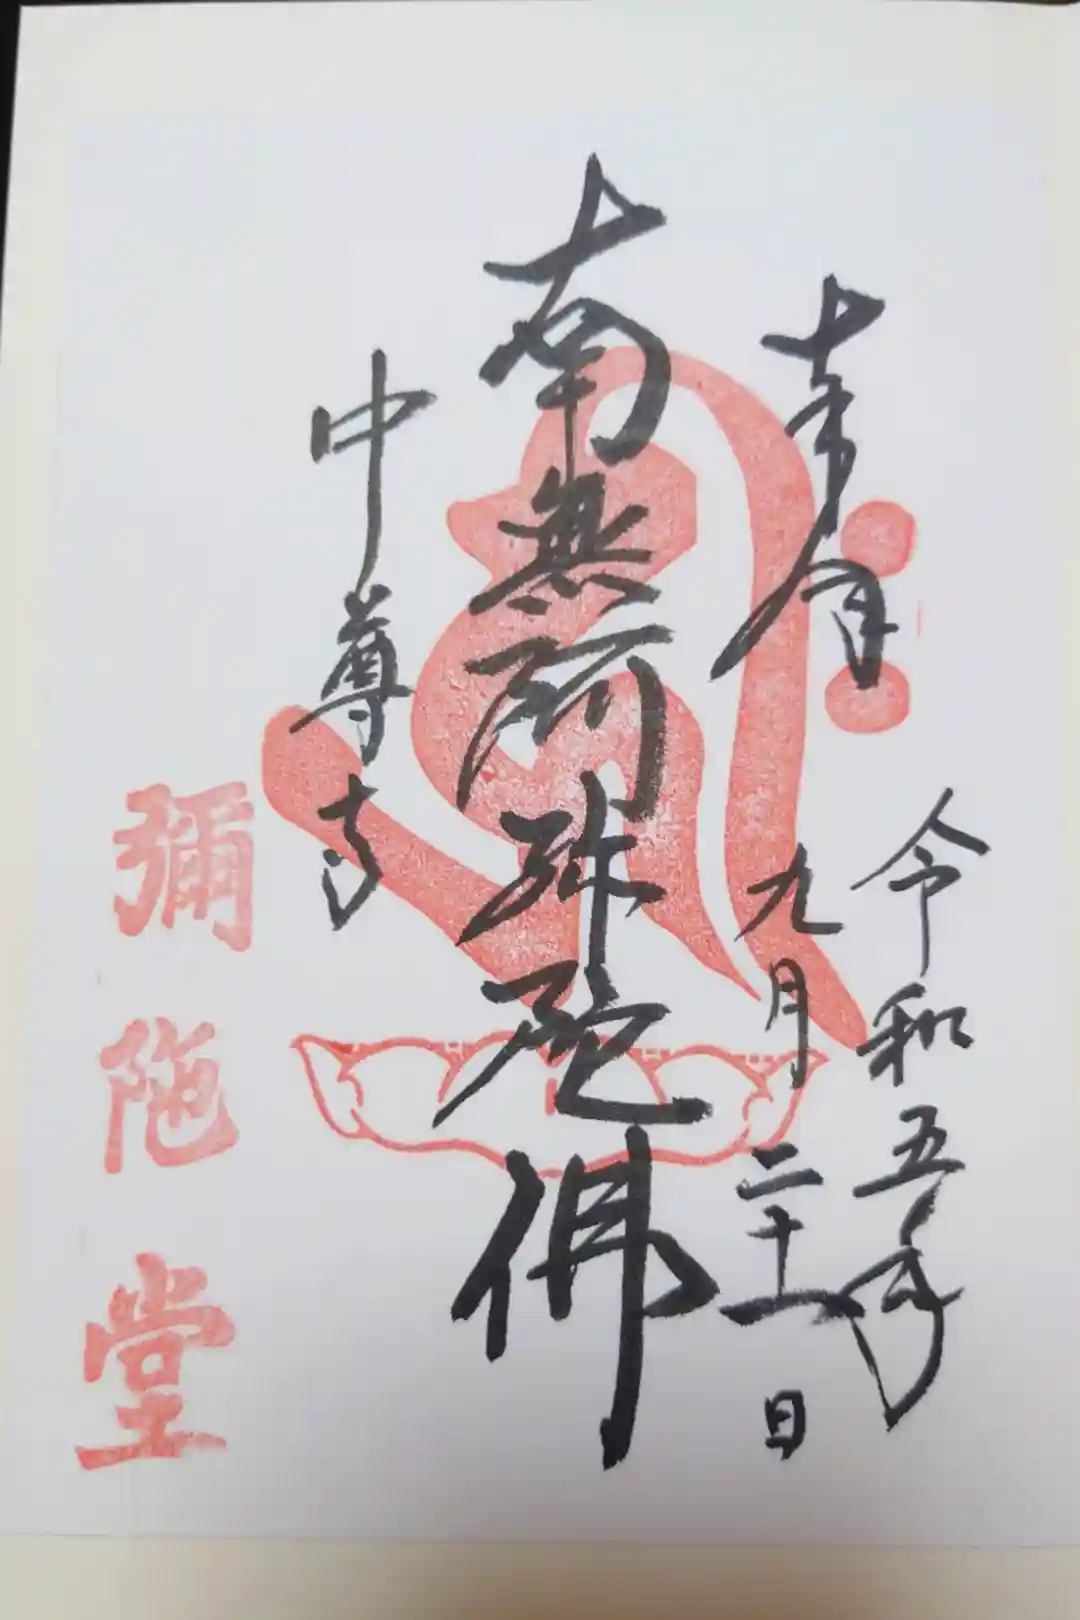 奉拝
令和五年
九月二十一日
南無阿弥陀佛
中尊寺
彌陁堂